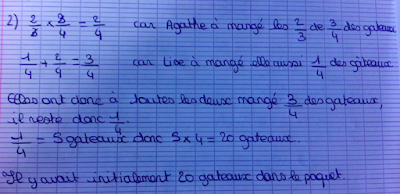 2) 2/3 x 3/4 = 2/4 car Agathe à mangé les 2/3 de 3/4 des gateaux
1/4 + 2/4 = 3/4 car Lise à mangé elle aussi 1/4 des gâteaux
Elles ont donc à toutes les deux mangé 3/4 des gateaux,
il reste donc 1/4.
1/4 = 5 gateaux donc 5 x 4 = 20 gateaux.
Il y avait initialement 20 gateaux dans le paquet.